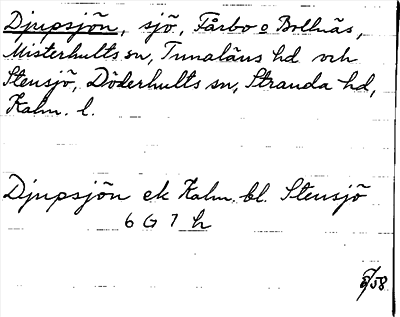 Djupsjön, sjö, Fårbo o Bollnäs,
Misterhults sn, Tunaläns hd och
Stensjö, Döderhults sn, Stranda hd,
Kalm. l.
Djupsjön ek Kalm. bl. Stensjö
6 G 7 h
58